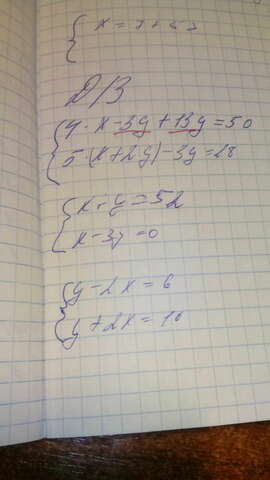 Д/З
4·x-3y+13y=50
5·(x+2y)-3y=28
x+y=52
x-3y=0
y-2x=6
y+2x=16